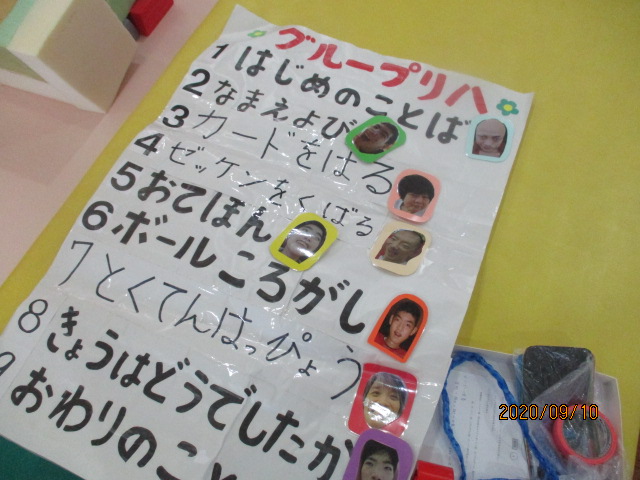 グループリハ
1 はじめのことば
2 なまえよび
3 カードをはる
4 ゼッケンをくばる
5 おてほん
6 ボールころがし
7 とくてんはっぴょう
8 きょうはどうでしたか
9 おわりのこと
2020/09/10